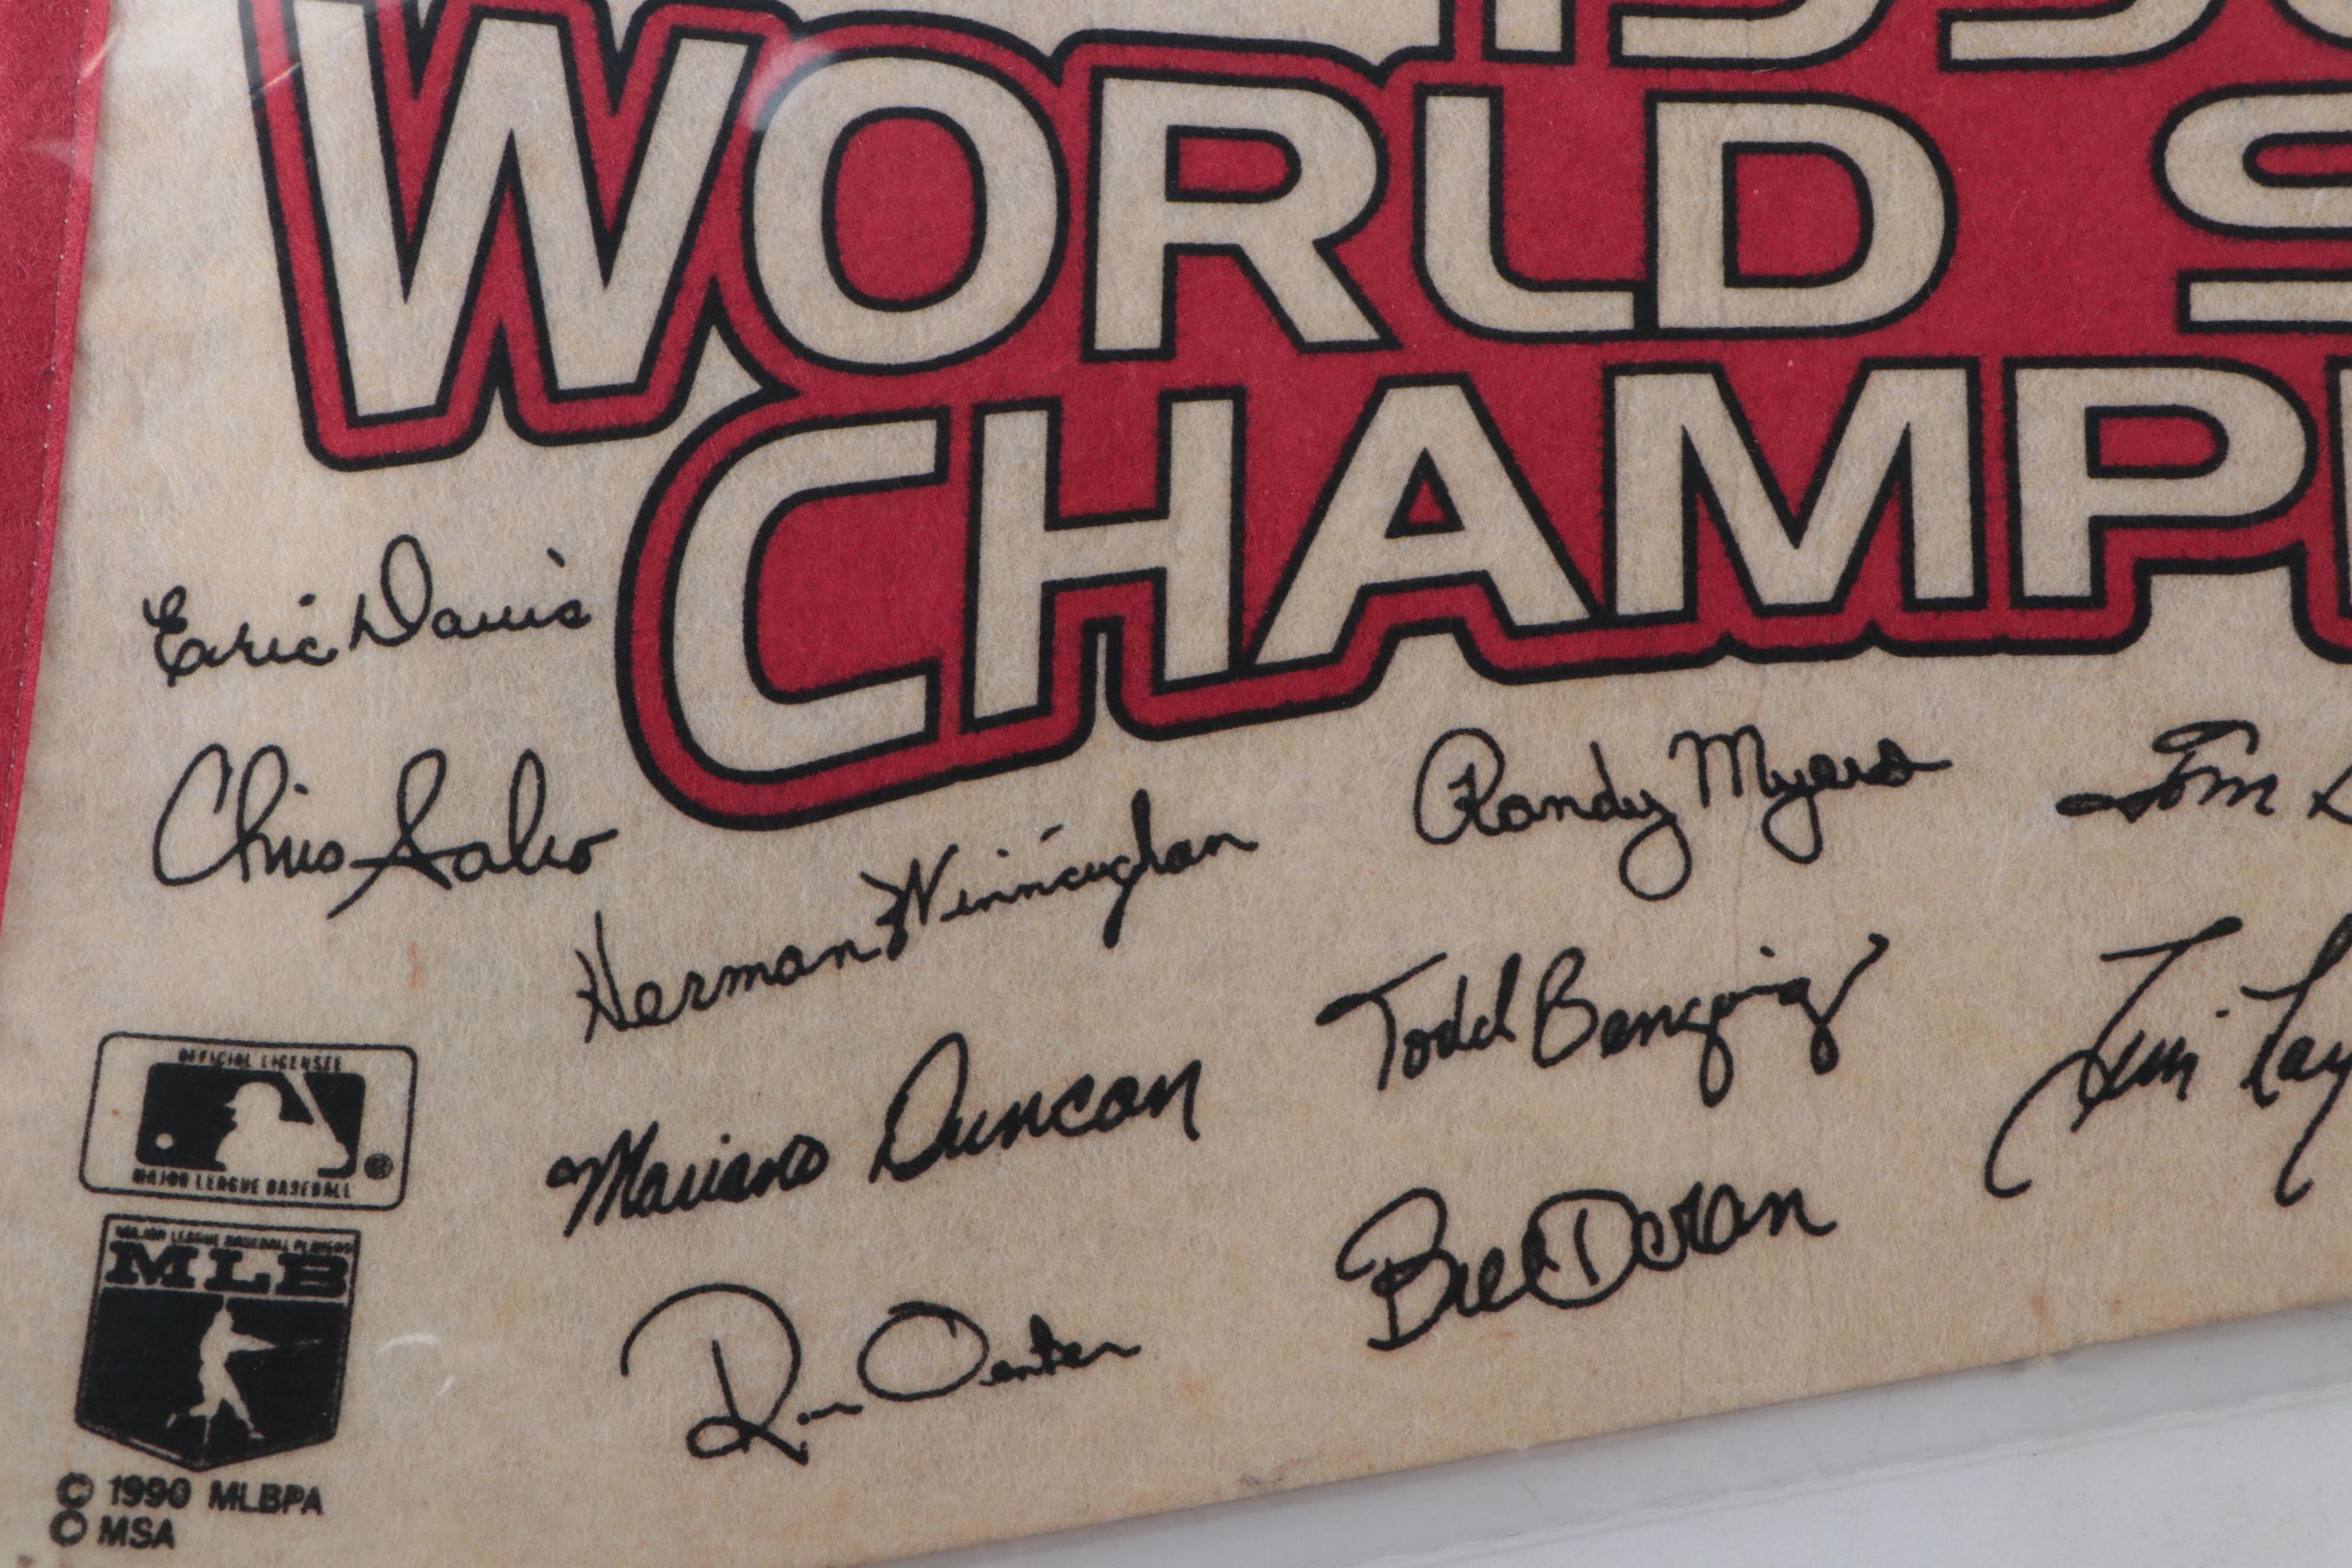 199
WORLD S
CHAMPI
Eric Davis
Chris Sabo
Herman Winningham
Randy Myers
Tom
Todd Benzinger
Tim Lay
Mariano Duncan
Bill Doran
Ron Oester
OFFICIAL LICENSEE
MAJOR LEAGUE BASEBALL
MAJOR LEAGUE BASEBALL PLAYERS
MLB
© 1990 MLBPA
© MSA